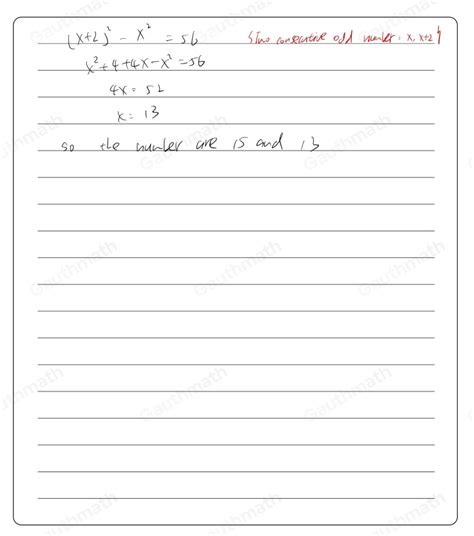 (x+2)² - x² = 56
{two consecutive odd number : x, x+2}
x² + 4 + 4x - x² = 56
4x = 52
x = 13
so the number are 15 and 13
Gauthmath